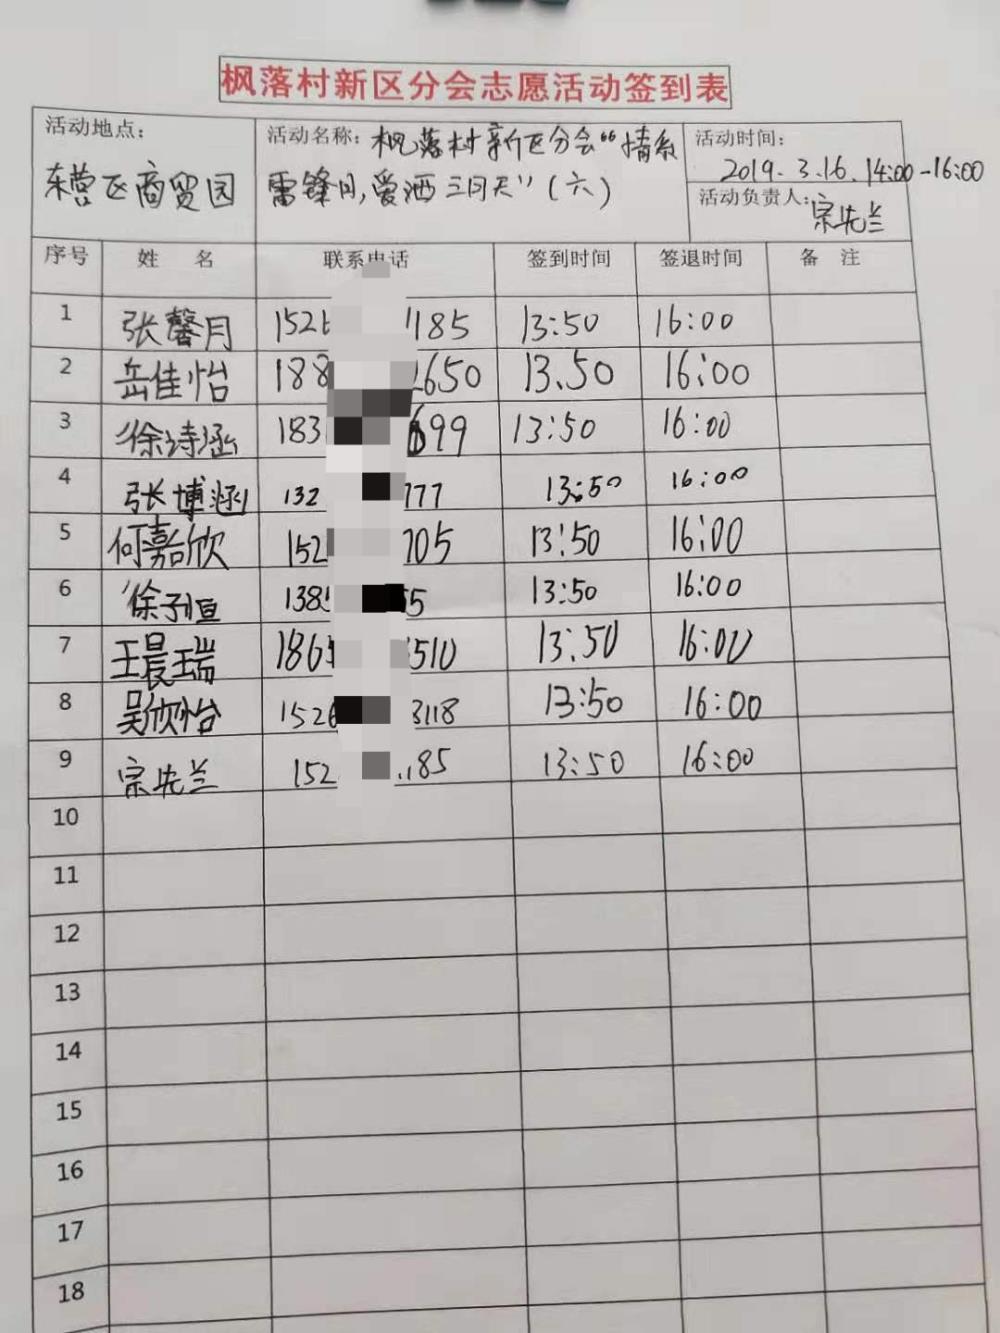 枫落村新区分会志愿活动签到表
活动地点: 活动名称: 枫落村新区分会“情系 活动时间:
东营区商贸园 雷锋月,爱洒三月天”(六) 2019.3.16.14:00-16:00
活动负责人: 宗先兰
序号 姓 名 联系电话 签到时间 签退时间 备 注
1 张馨月 152 185 13:50 16:00
2 岳佳怡 188 650 13.50 16:00
3 徐诗涵 183 699 13:50 16:00
4 张博涵 132 777 13:50 16:00
5 何嘉欣 152 705 13:50 16:00
6 徐子恒 1385 55 13:50 16:00
7 王晨瑞 1865 510 13:50 16:00
8 吴欣怡 1526 3118 13:50 16:00
9 宗先兰 152 185 13:50 16:00
10
11
12
13
14
15
16
17
18